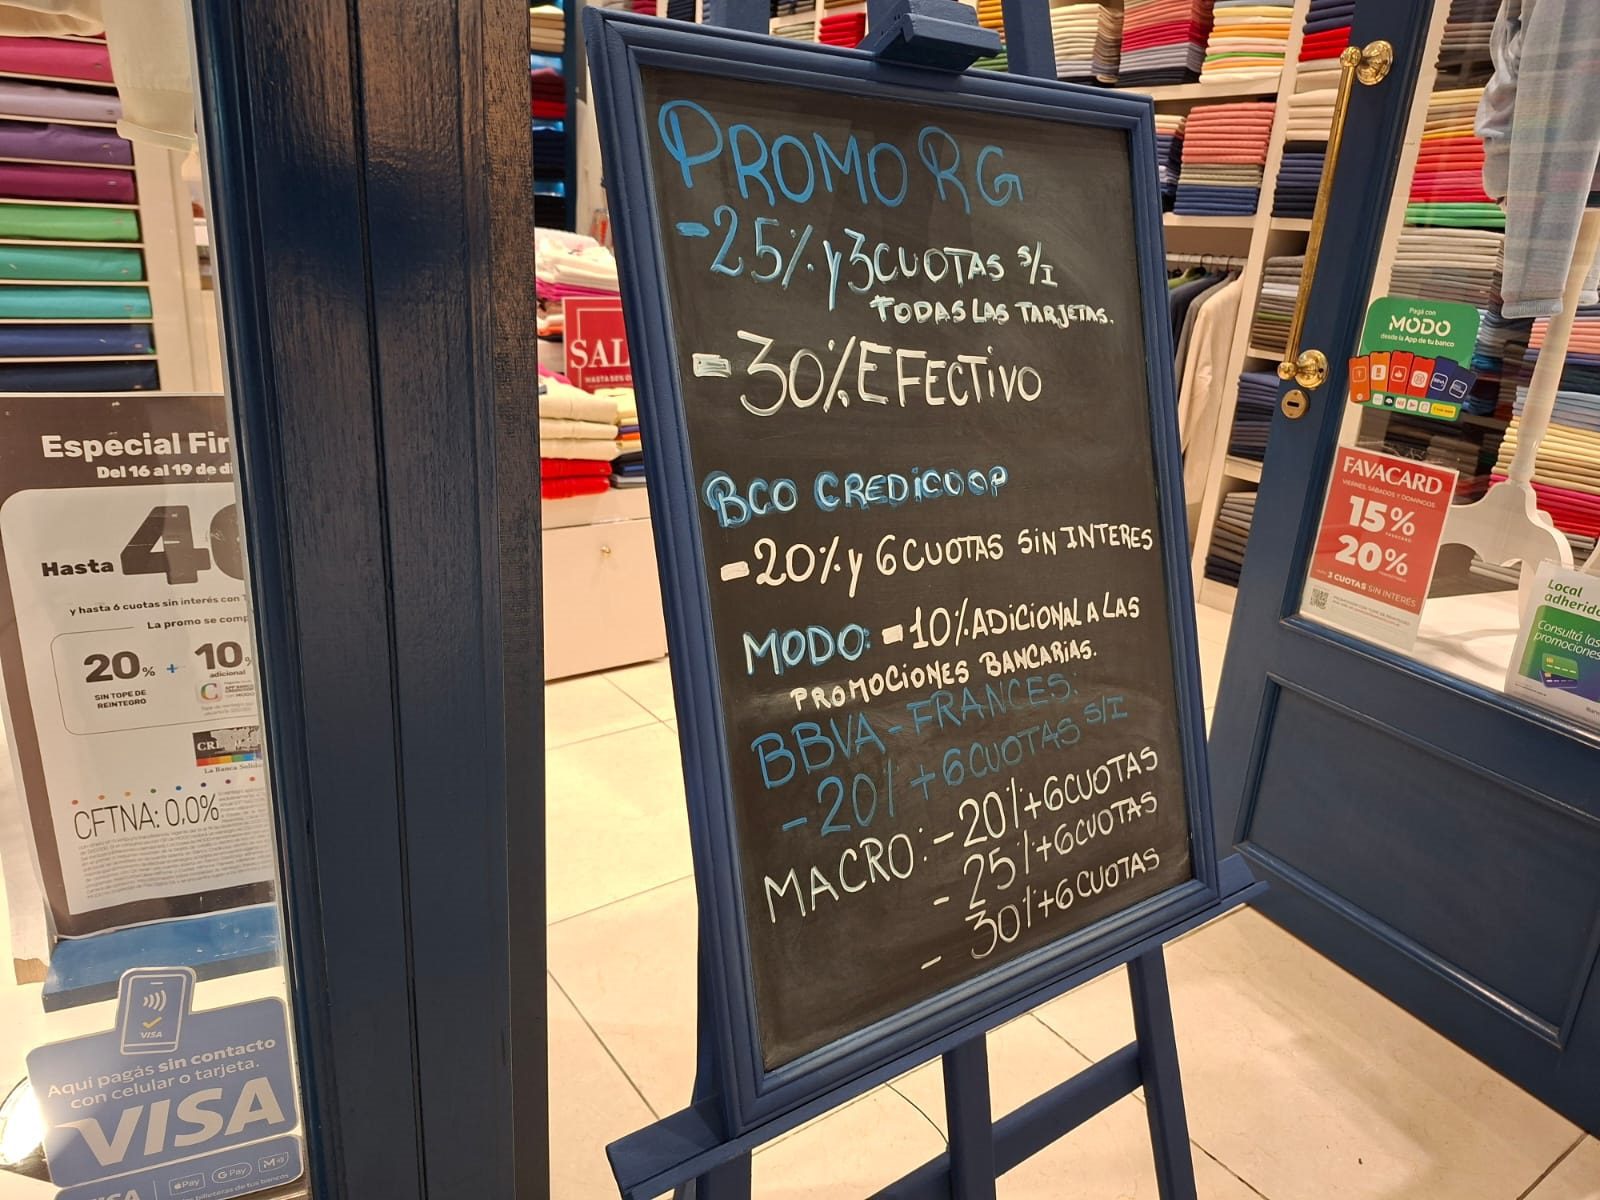 PROMO RG
-25% y 3 CUOTAS S/I
TODAS LAS TARJETAS.
-30% EFECTIVO
BCO CREDICOOP
-20% y 6 CUOTAS SIN INTERES
MODO: -10% ADICIONAL A LAS
PROMOCIONES BANCARIAS.
BBVA-FRANCES:
-20% + 6 CUOTAS S/I
MACRO: -20% + 6 CUOTAS
-25% + 6 CUOTAS
-30% + 6 CUOTAS
Especial Fin
Del 16 al 19 de di
Hasta 40
y hasta 6 cuotas sin interés con
La promo se comp
20% + 10%
SIN TOPE DE
REINTEGRO
adicional
La Banca Solid
CFTNA: 0,0%
VISA
Aquí pagás sin contacto
con celular o tarjeta.
VISA
Pay G Pay
SAL
Pagá con
MODO
desde la App de tu banco
FAVACARD
VIERNES, SÁBADOS Y DOMINGOS
15%
20%
3 CUOTAS SIN INTERÉS
Local
adherido
Consultá las
promociones